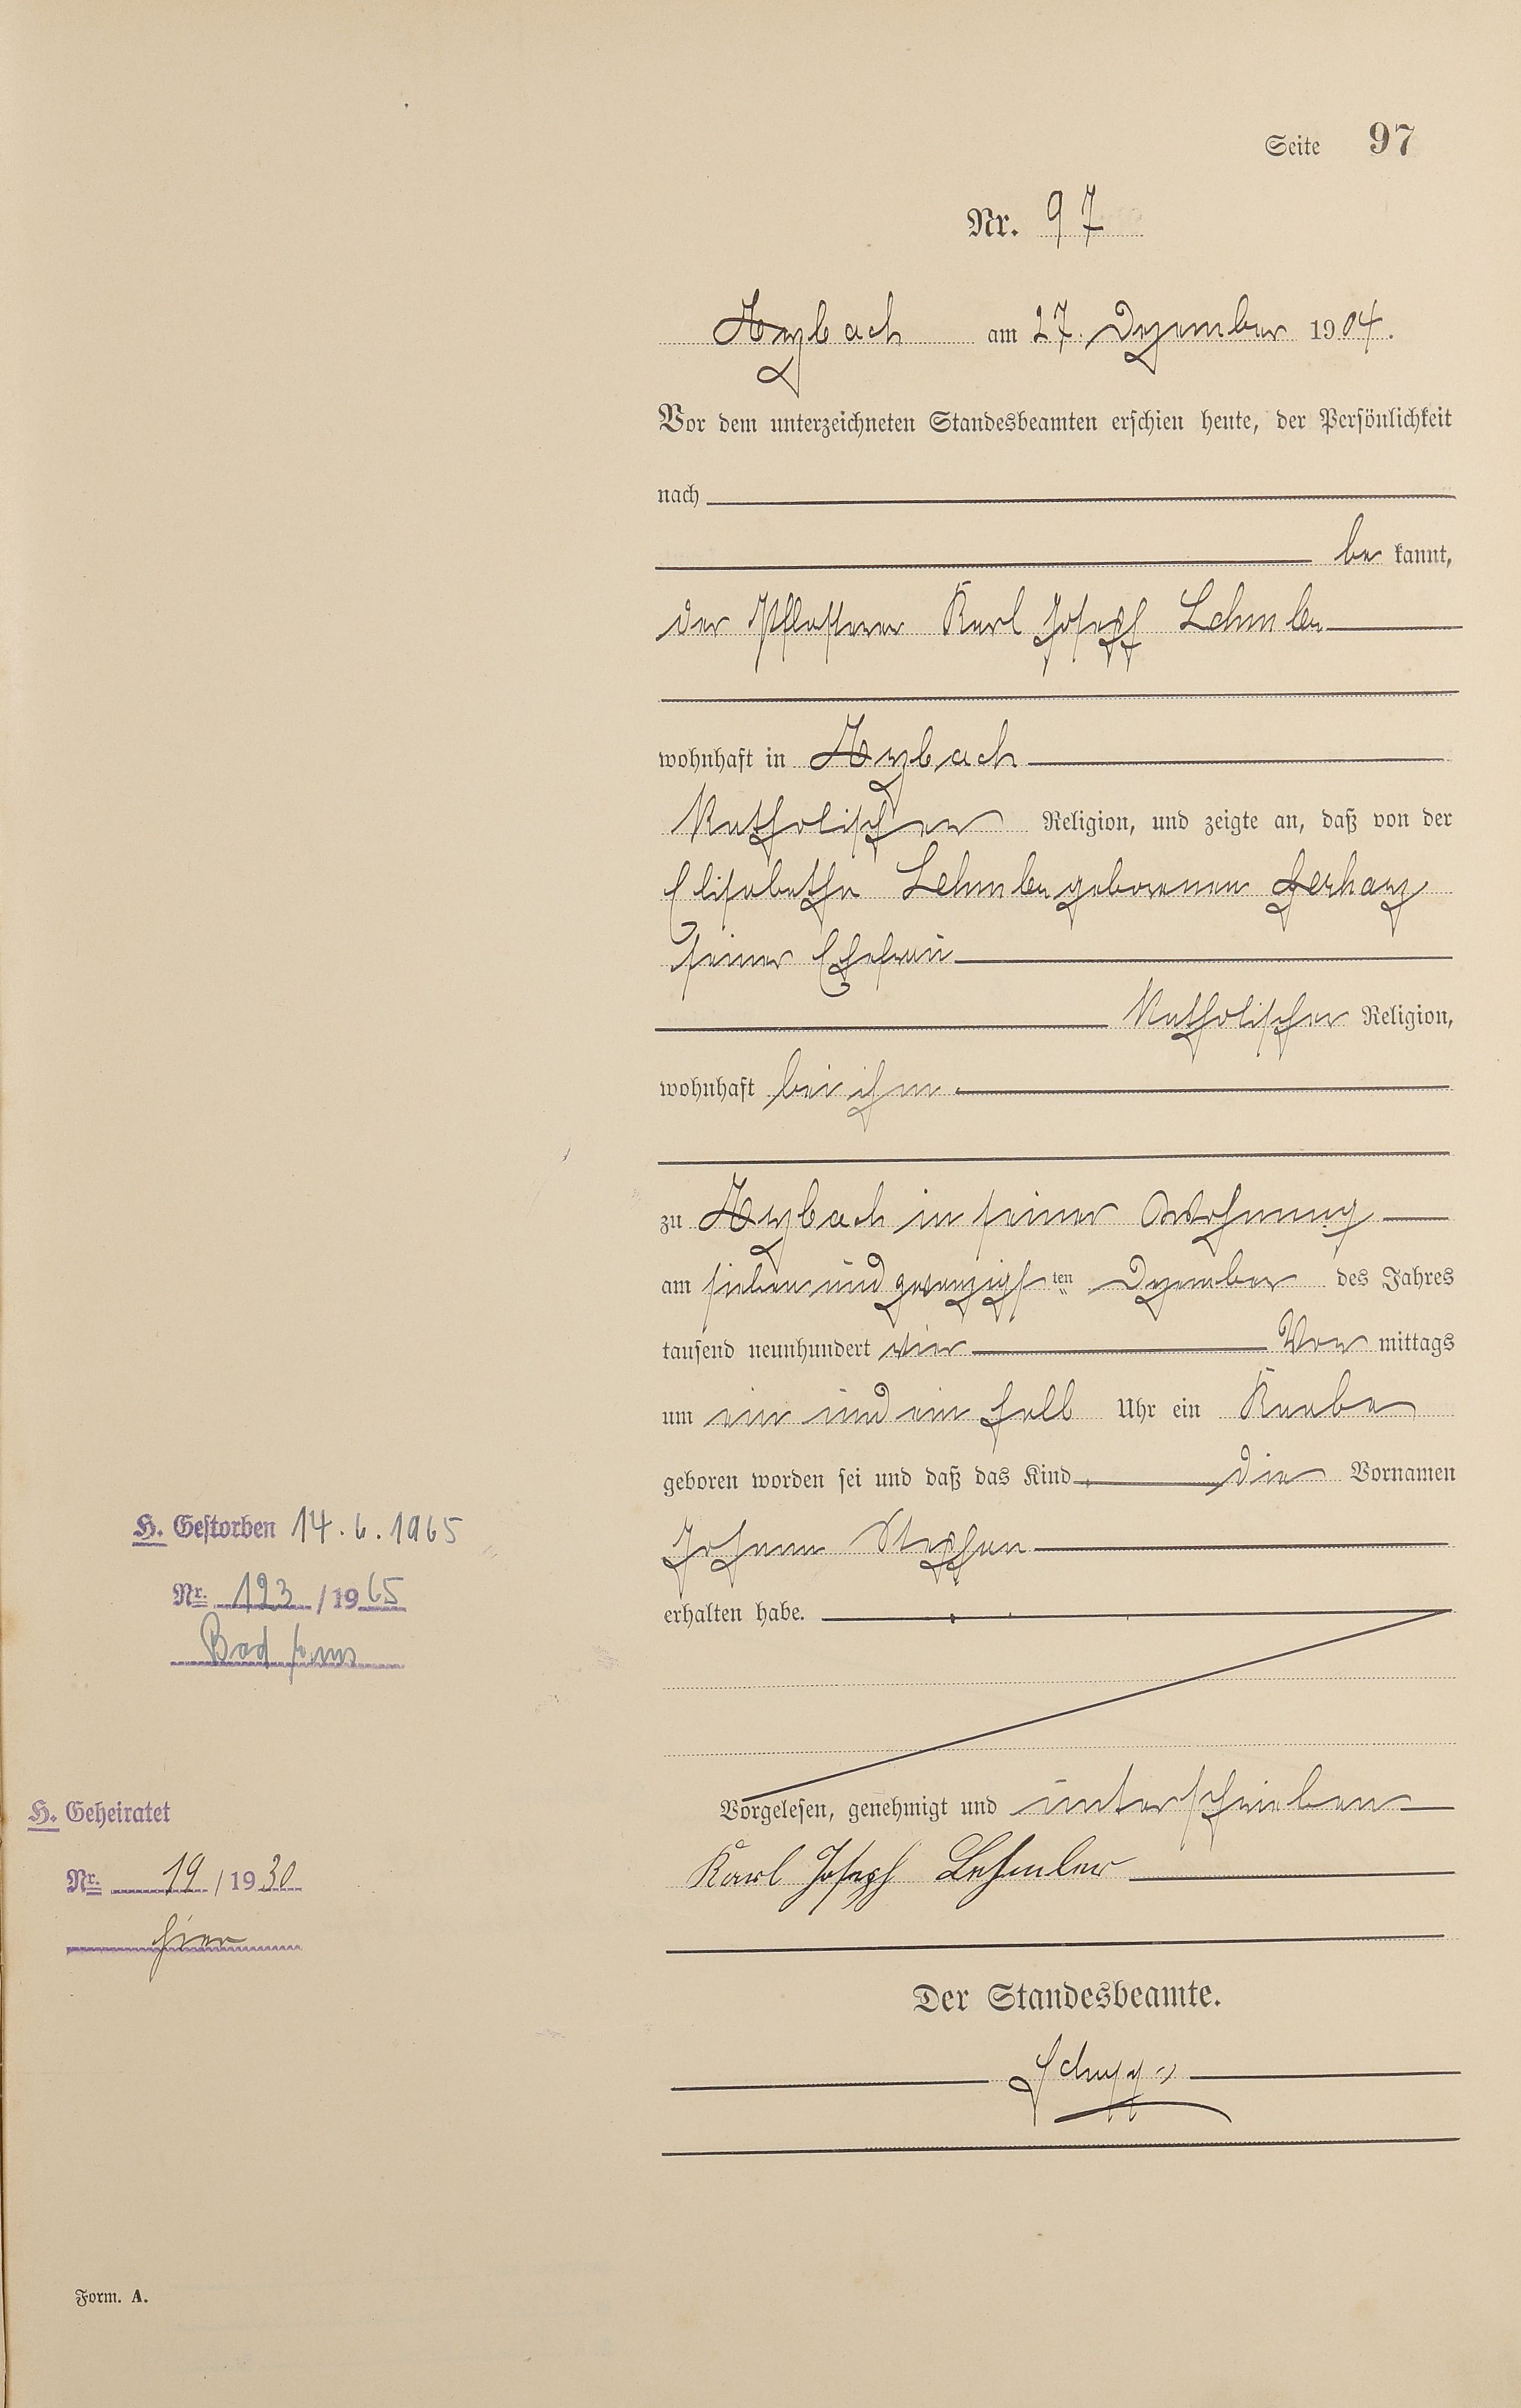 Seite 97
Nr. 97
Arzbach am 27. Dezember 1904.
Vor dem unterzeichneten Standesbeamten erschien heute, der Persönlichkeit
nach
be kannt,
der Pflasterer Karl Joseph Lehmler
wohnhaft in Arzbach
Katholischer Religion, und zeigte an, daß von der
Elisabetha Lehmler geborenen Gerharz
seiner Ehefrau
Katholischer Religion,
wohnhaft bei ihm
zu Arzbach in seiner Wohnung
am sieben und zwanzigsten Dezember des Jahres
tausend neunhundert vier Vor mittags
um ein und ein halb Uhr ein Knabe
geboren worden sei und daß das Kind die Vornamen
Johann Stephan
erhalten habe.
Vorgelesen, genehmigt und unterschrieben
Karl Joseph Lehmler
Der Standesbeamte.
H. Gestorben 14.6.1965
Nr. 123/1965
Bad Ems
H. Geheiratet
Nr. 19/1930
hier
Form. A.